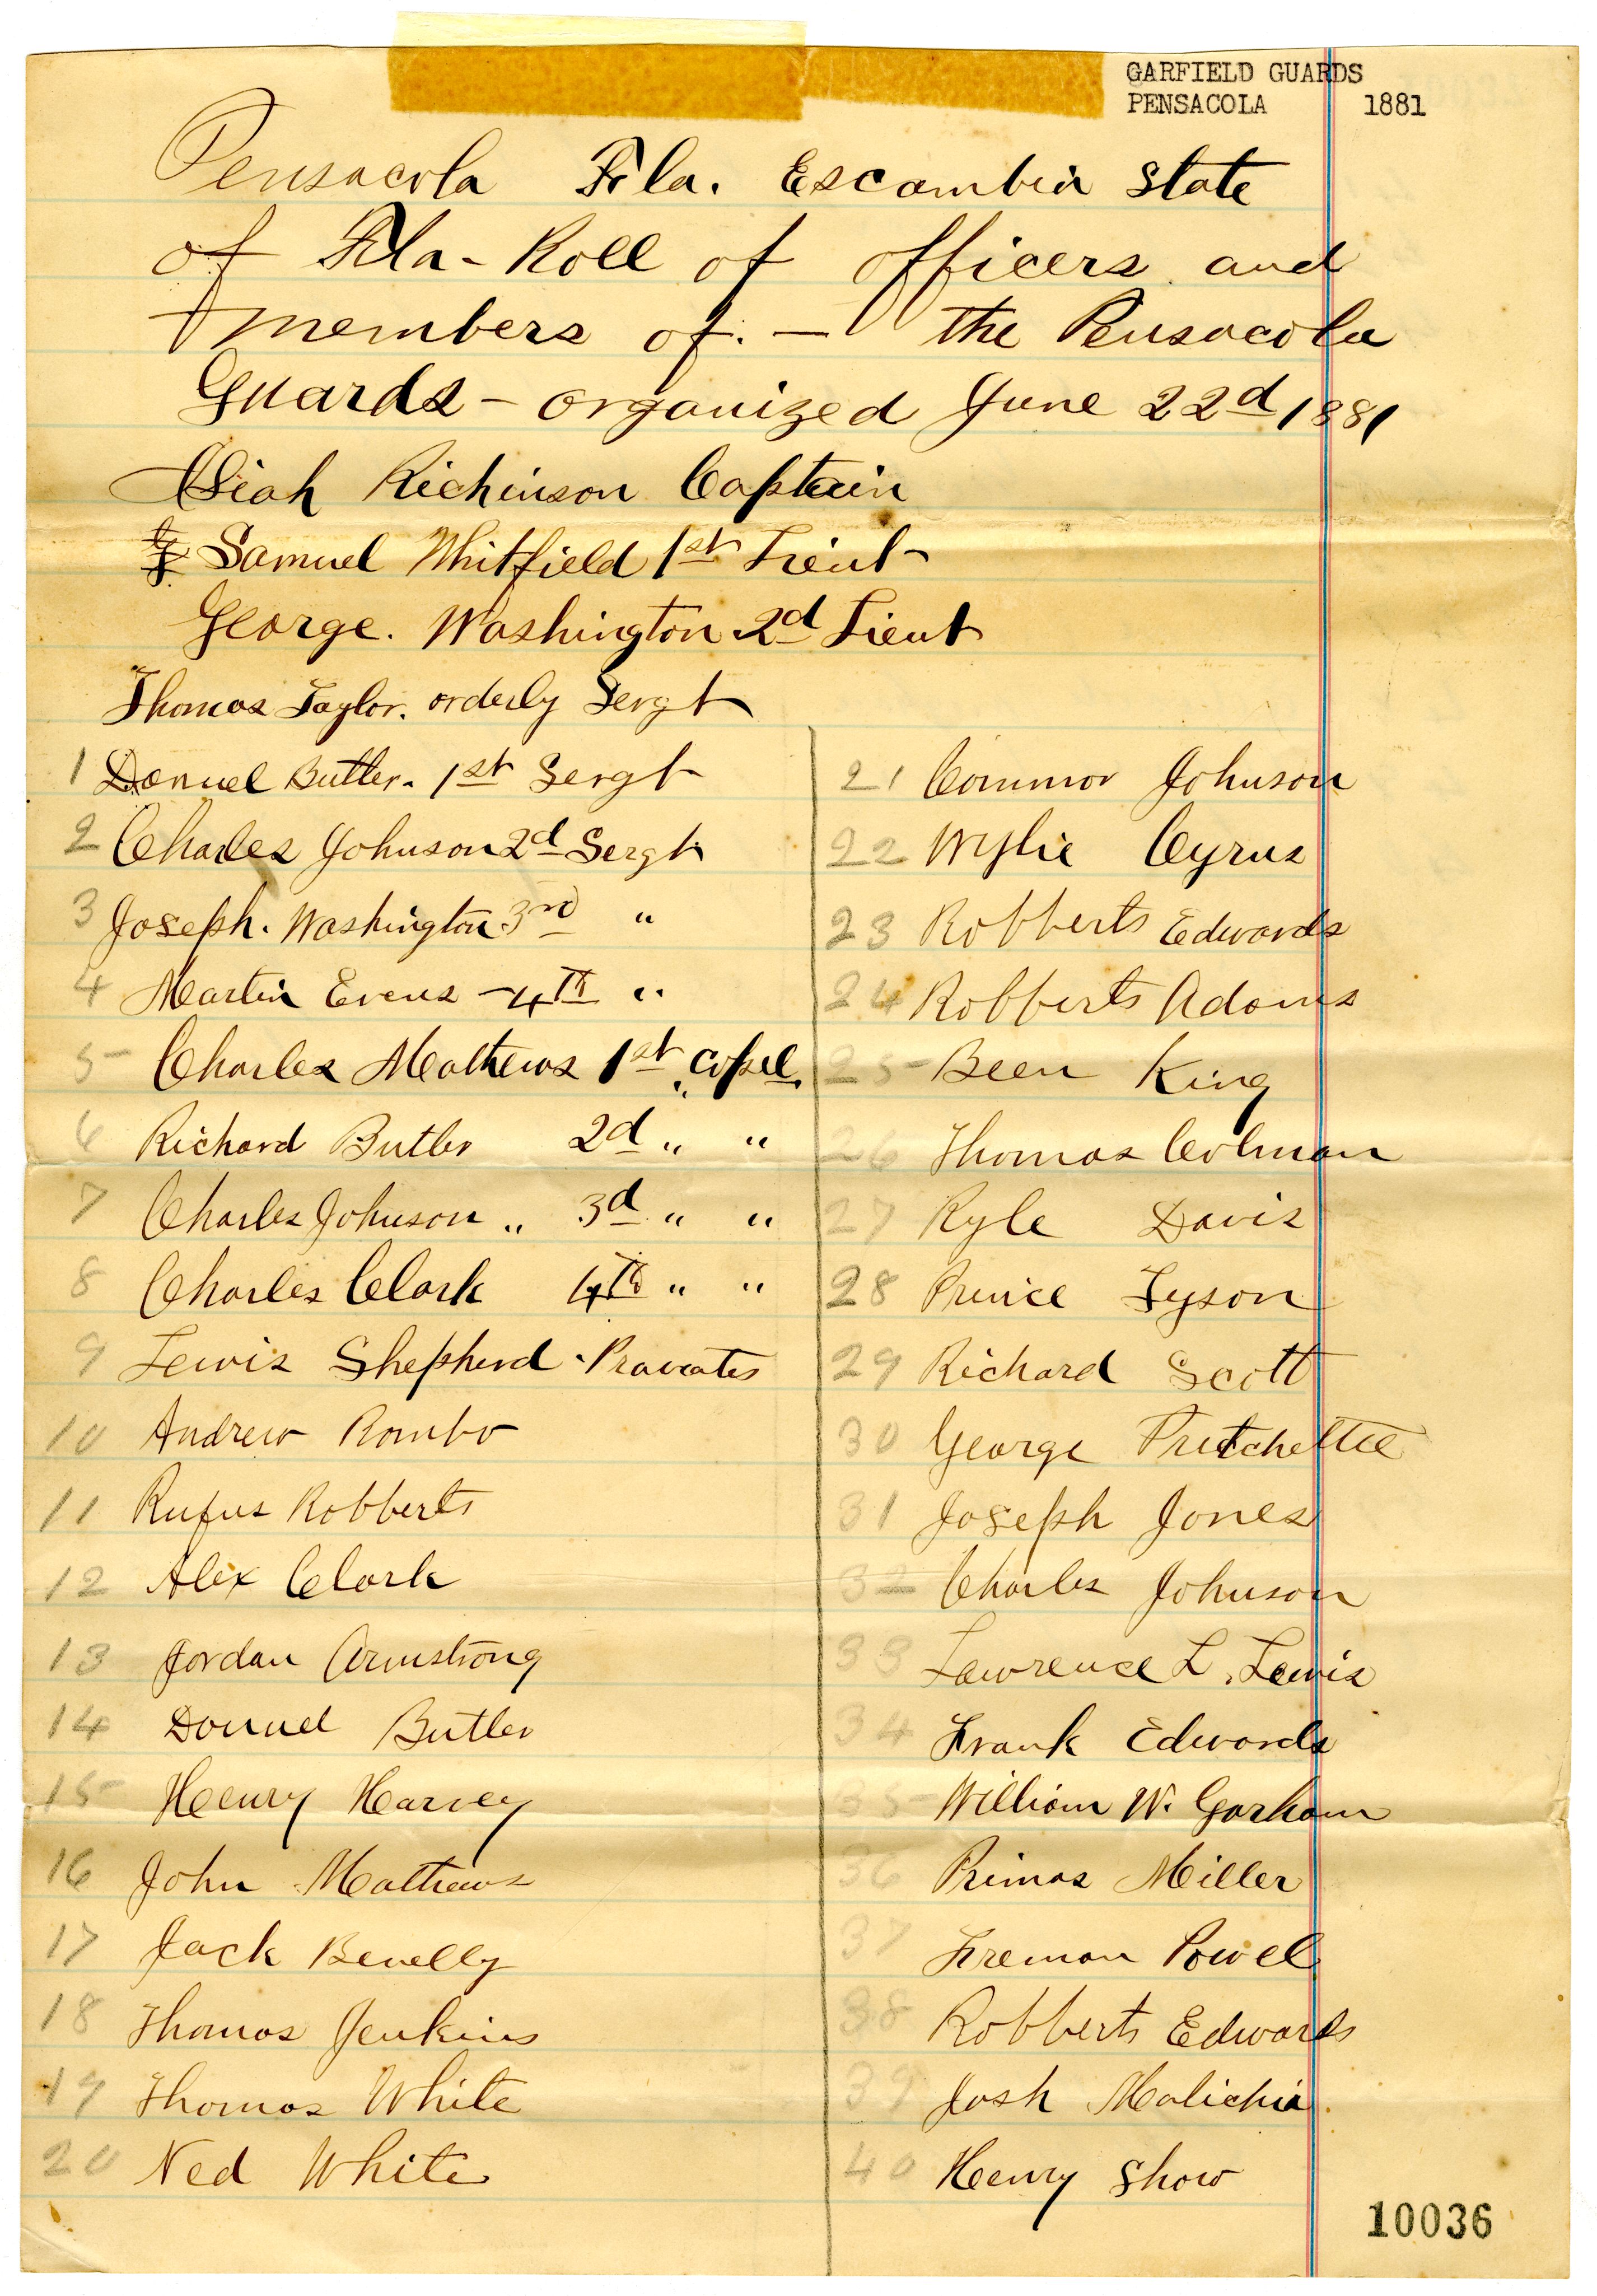 GARFIELD GUARDS
PENSACOLA 1881
Pensacola Fla. Escambia State
of Fla - Roll of officers and
members of. — the Pensacola
Guards - organized June 22d 1881
Asiah Richinson Captain
Samuel Whitfield 1st Lieut
George. Washington 2d Lieut
Thomas Taylor. orderly Sergt
1 Danuel Butler. 1st Sergt
2 Charles Johnson 2d Sergt
3 Joseph. Washington 3rd "
4 Martin Evens - 4th "
5 Charles Mathews 1st Corpel.
6 Richard Butler 2d " "
7 Charles Johnson " 3d " "
8 Charles Clark 4th " "
9 Lewis Shepherd - Pravates
10 Andrew Rombo
11 Rufus Robberts
12 Alex Clark
13 Jordan Armstrong
14 Donuel Butler
15 Henry Harvey
16 John Mathews
17 Jack Benelly
18 Thomas Jenkins
19 Thomas White
20 Ned White
21 Commor Johnson
22 Wylie Cyrus
23 Robberts Edwards
24 Robberts Adams
25 Been King
26 Thomas Colman
27 Ryle Davis
28 Prince Tyson
29 Richard Scott
30 George Pritchettee
31 Joseph Jones
32 Charles Johnson
33 Lawrence L. Lewis
34 Frank Edwards
35 William W. Gorham
36 Primas Miller
37 Freman Powel
38 Robberts Edwards
39 Josh Malichia
40 Henry Show
10036